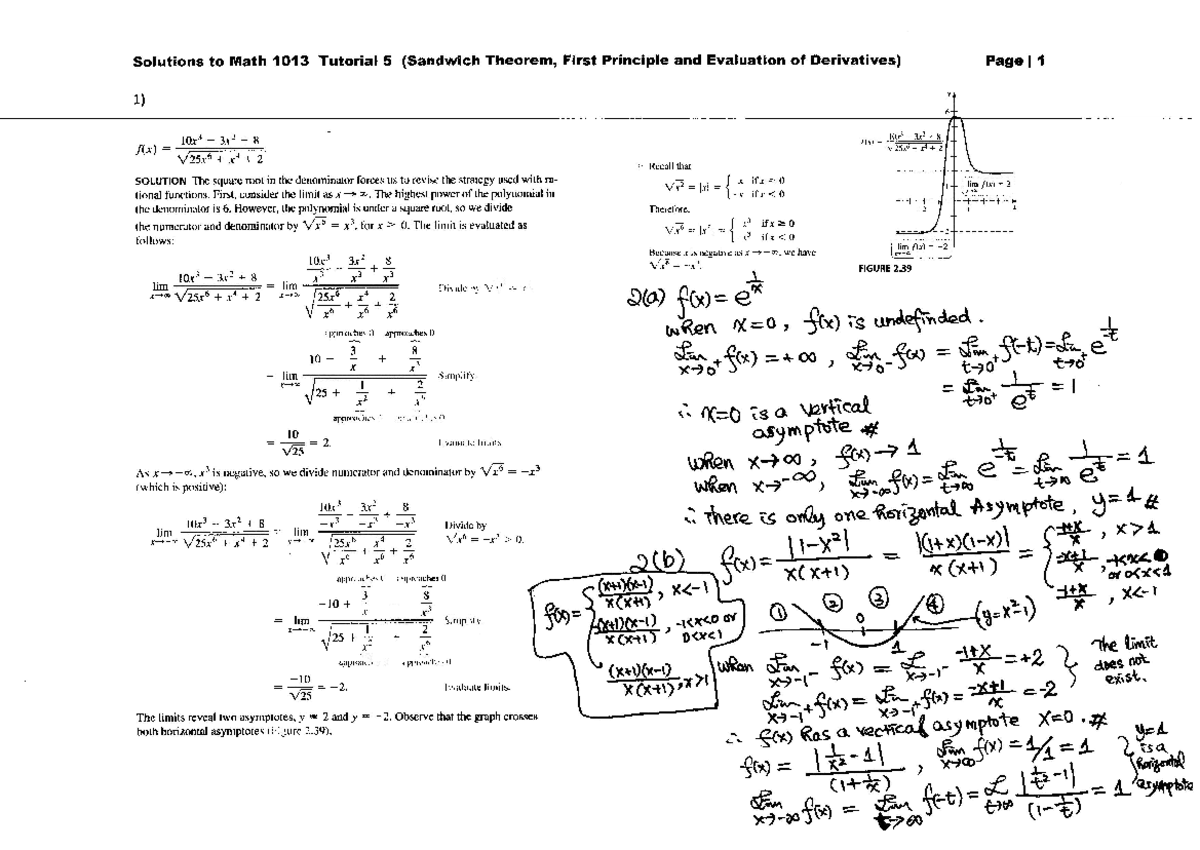 Solutions to Math 1013 Tutorial 5 (Sandwich Theorem, First Principle and Evaluation of Derivatives) Page | 1
1)
f(x) = (10x³ − 3x² − 8)/√(25x⁶ + x⁴ + 2)
SOLUTION The square root in the denominator forces us to revise the strategy used with ra-
tional functions. First, consider the limit as x → ∞. The highest power of the polynomial in
the denominator is 6. However, the polynomial is under a square root, so we divide
the numerator and denominator by √x⁶ = x³, for x > 0. The limit is evaluated as
follows:
lim x→∞ (10x³ − 3x² + 8)/√(25x⁶ + x⁴ + 2) = lim x→∞ (10x³/x³ − 3x²/x³ + 8/x³)/√(25x⁶/x⁶ + x⁴/x⁶ + 2/x⁶)
approaches 0 approaches 0
= lim x→∞ (10 − 3/x + 8/x³)/√(25 + 1/x² + 2/x⁶) Simplify.
= 10/√25 = 2. Evaluate limits.
As x → −∞, x³ is negative, so we divide numerator and denominator by √x⁶ = −x³
(which is positive):
lim x→−∞ (10x³ − 3x² + 8)/√(25x⁶ + x⁴ + 2) = lim x→−∞ (10x³/−x³ − 3x²/−x³ + 8/−x³)/√(25x⁶/x⁶ + x⁴/x⁶ + 2/x⁶) Divide by √x⁶ = −x³ > 0.
approaches 0 approaches 0
= lim x→−∞ (−10 + 3/x − 8/x³)/√(25 + 1/x² + 2/x⁶) Simplify.
= −10/√25 = −2. Evaluate limits.
The limits reveal two asymptotes, y = 2 and y = −2. Observe that the graph crosses
both horizontal asymptotes (Figure 2.39).
Recall that
√x² = |x| = { x if x ≥ 0
−x if x < 0
Therefore,
√x⁶ = |x³| = { x³ if x ≥ 0
x³ if x < 0
Because x is negative as x → −∞, we have
√x⁶ = −x³.
lim f(x) = 2
lim f(x) = −2
FIGURE 2.39
2(a) f(x) = e^(1/x)
when x=0, f(x) is undefinded.
Lim x→0⁺ f(x) = +∞, Lim x→0⁻ f(x) = Lim t→0⁺ f(−t) = Lim t→0⁺ e^(1/−t)
= Lim t→0⁺ 1/e^(1/t) = 1
∴ x=0 is a vertical
asymptote #
when x→∞, f(x) → 1
when x→−∞, Lim x→−∞ f(x) = Lim t→∞ e^(1/−t) = Lim t→∞ 1/e^(1/t) = 1
∴ there is only one horizontal Asymptote, y=1 #
2(b) f(x) = |1−x²|/(x(x+1)) = |(1+x)(1−x)|/(x(x+1)) = { (−1+x)/x, x>1
(−x+1)/x, −1<x<0 or 0<x<1
(−1+x)/x, x<−1
f(x) = { (x+1)(x−1)/(x(x+1)), x<−1
−(x+1)(x−1)/(x(x+1)), −1<x<0 or 0<x<1
(x+1)(x−1)/(x(x+1)), x>1
① ② ③ ④ (y=x²−1)
−1 0 1
when Lim x→−1⁻ f(x) = L x→−1⁻ (−1+x)/x = +2
Lim x→−1⁺ f(x) = Lim x→−1⁺ f(x) = (−x+1)/x = −2
The limit
does not
exist.
∴ f(x) has a vectical asymptote x=0. #
f(x) = |1/x² − 1|/(1+1/x), Lim x→∞ f(x) = 1/1 = 1
Lim x→−∞ f(x) = Lim t→∞ f(−t) = L t→∞ |1/t² − 1|/(1−1/t) = 1
y=1
is a
horizontal
asymptote